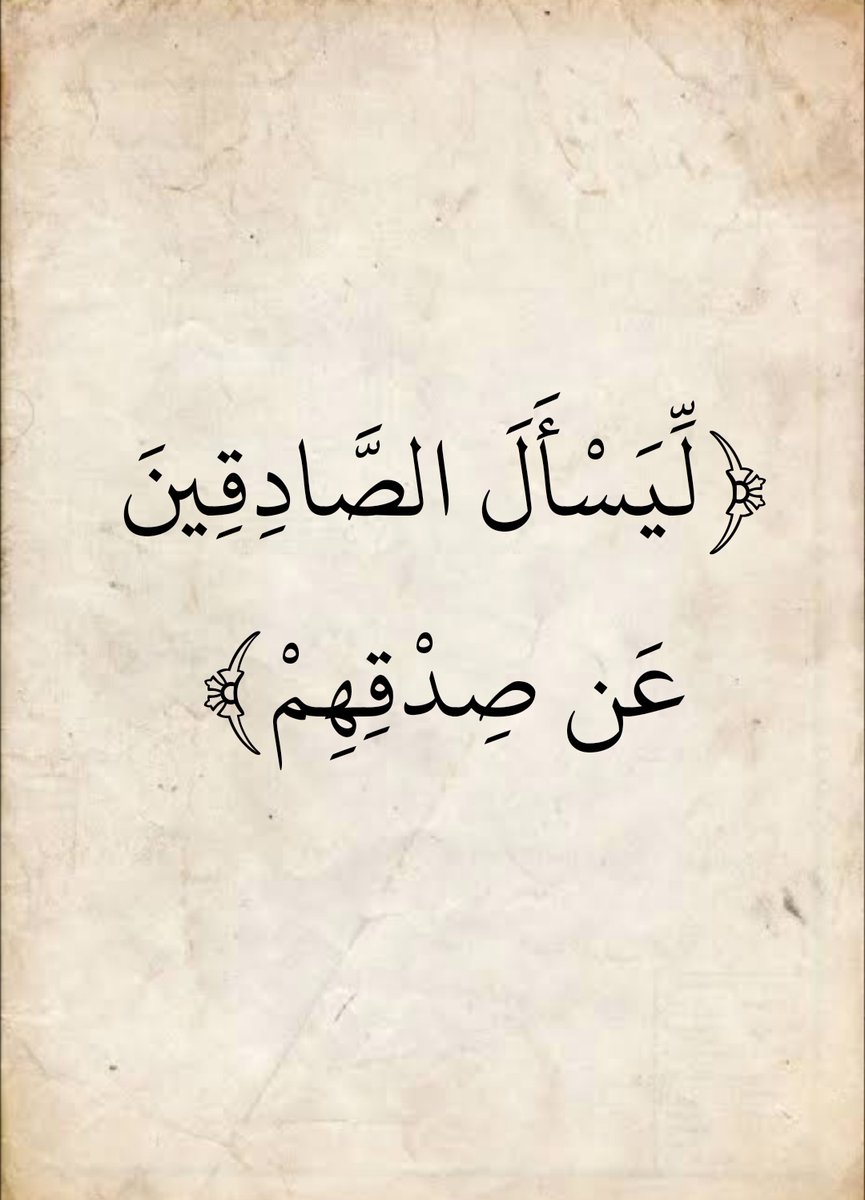 ﴿لِّيَسْأَلَ الصَّادِقِينَ
عَن صِدْقِهِمْ﴾